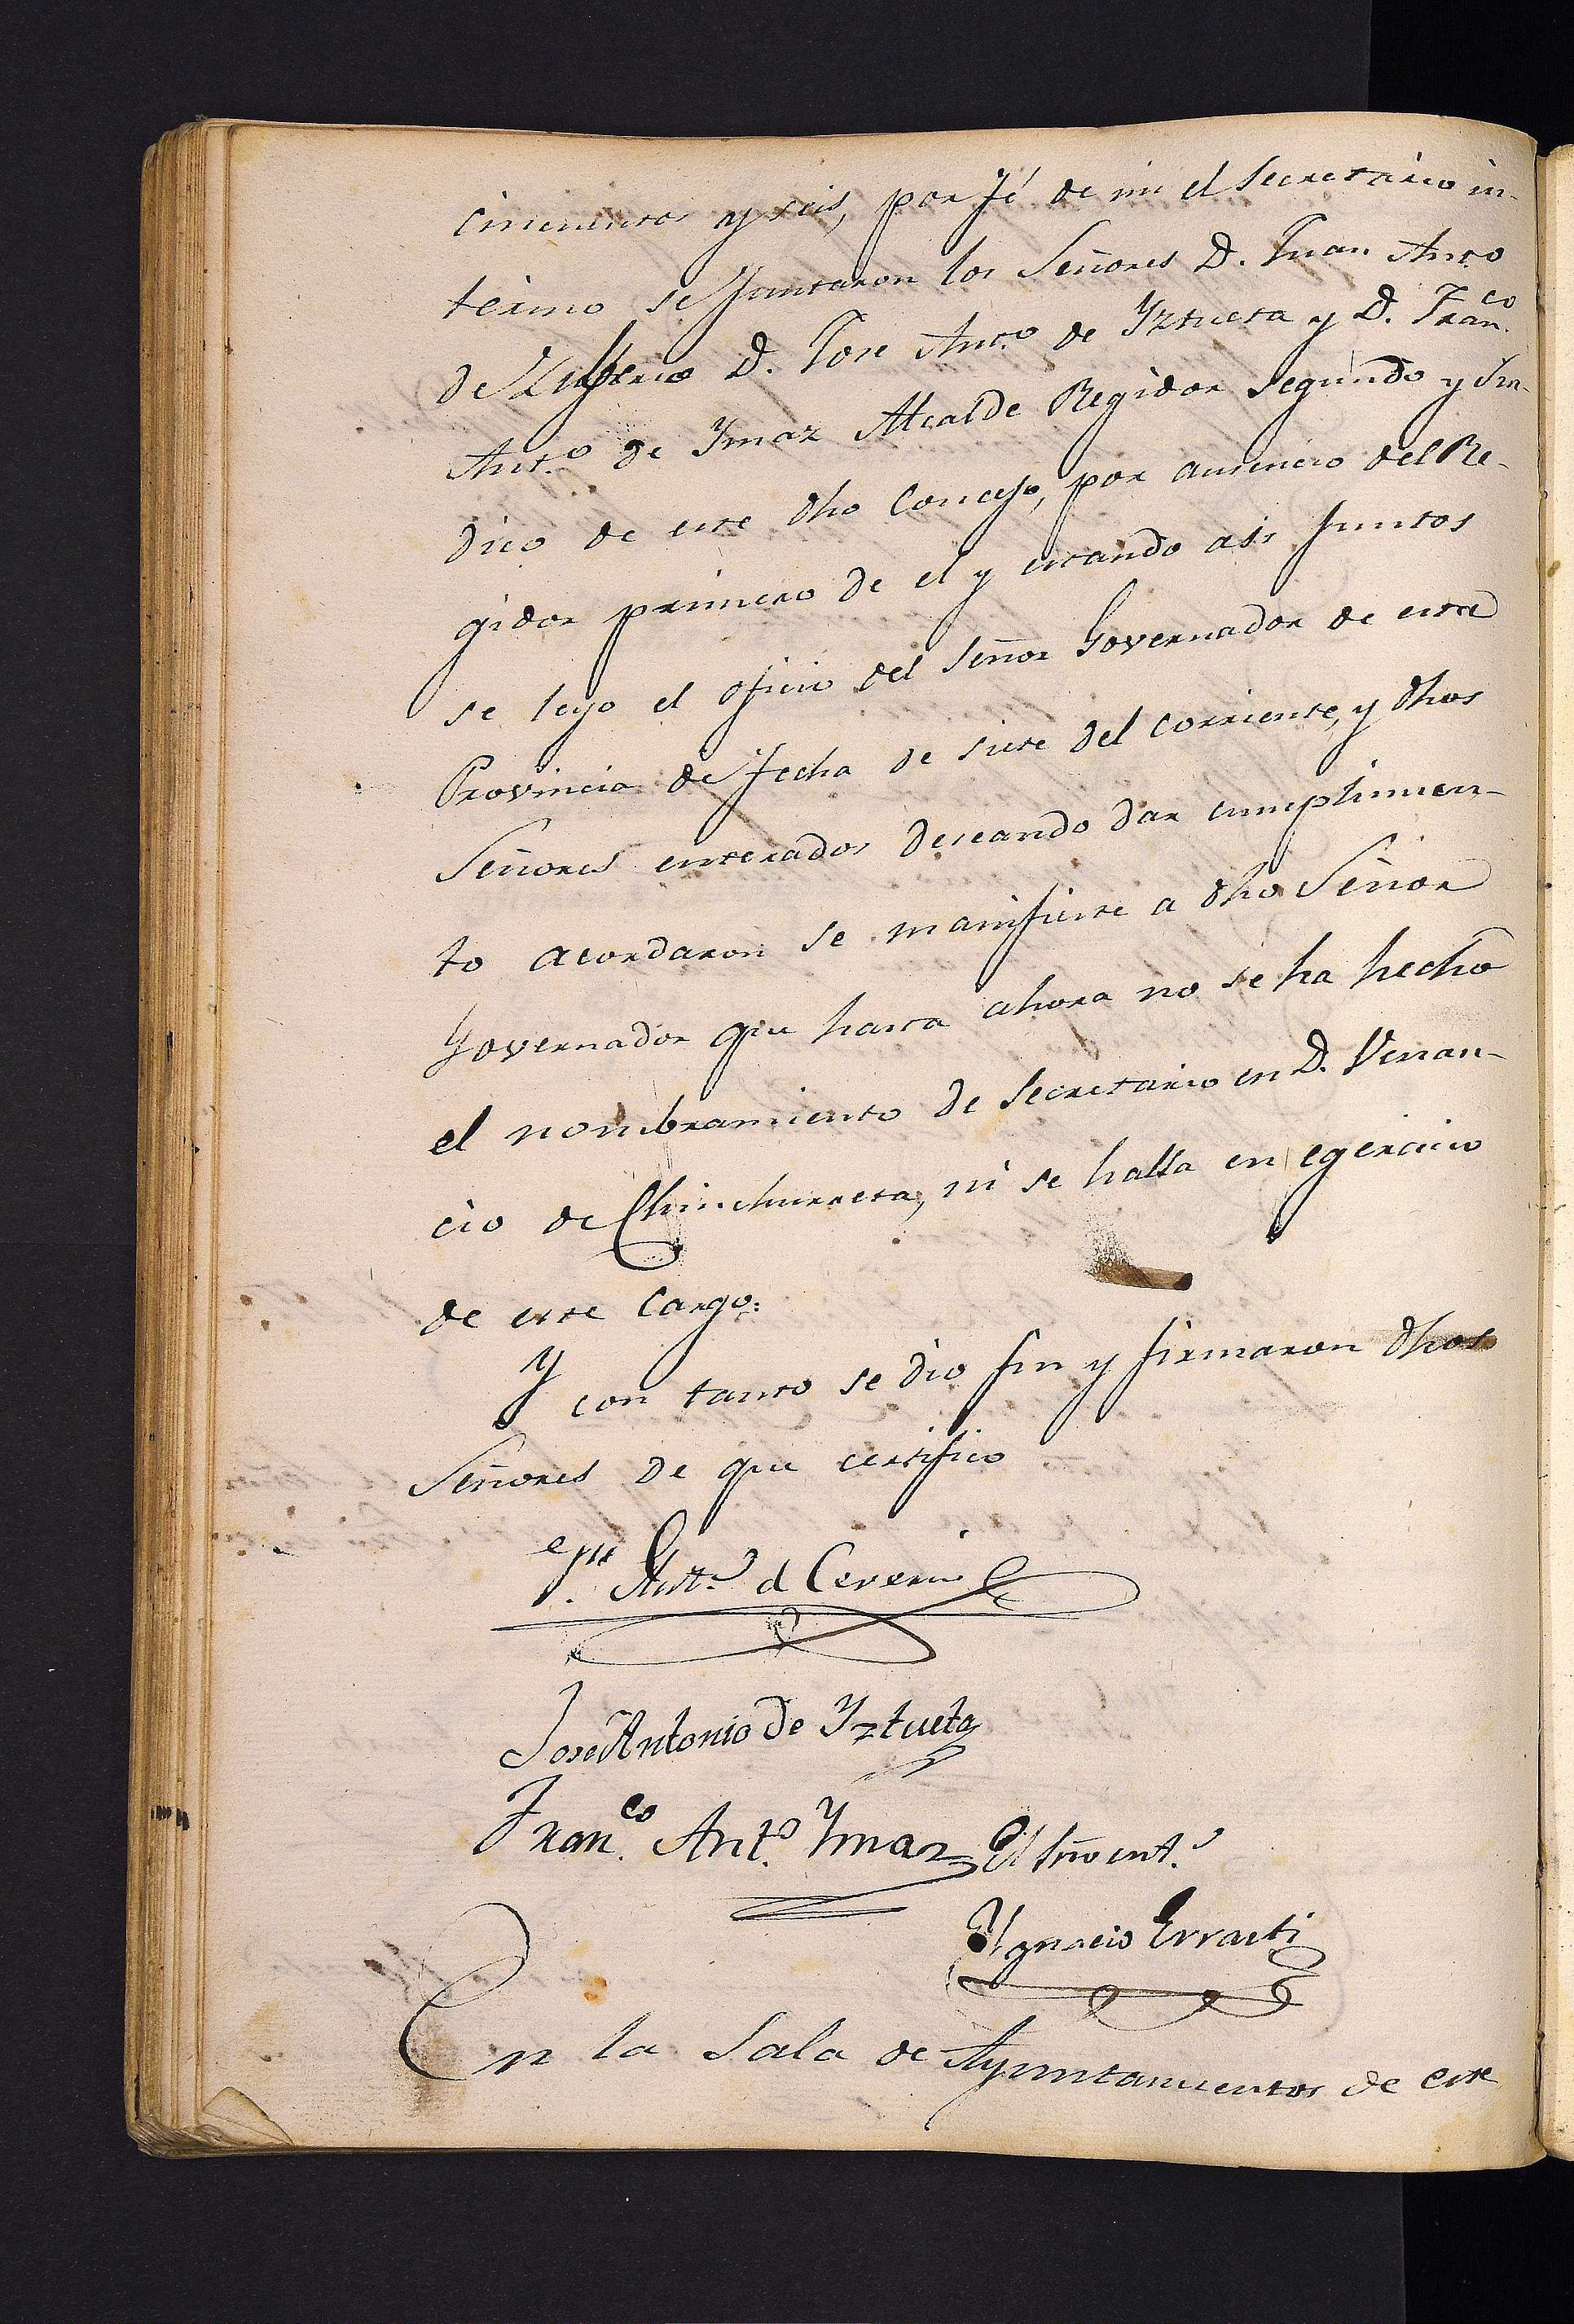 cincuenta y seis, por fé de mi el Secretario in-
terino se juntaron los Señores D. Juan Anto
de D. Jose Ant.o de Yztueta y D. Fran.co
Ant.o de Ymaz Alcalde Regidor segundo y Sin-
dico de este dho Concejo, por ausencia del Re-
gidor primero de el y estando asi juntos
se leyo el oficio del Señor Governador de esta
Provincia de fecha de siete del corriente, y dhos
Señores enterados deseando dar cumplimien-
to acordaron se manifieste a dho Señor
Governador que hasta ahora no se ha hecho
el nombramiento de Secretario en D. Venan-
cio de Chinchurreta, ni se halla en egercicio
de este Cargo:
Y con tanto se dio fin y firmaron dhos
Señores de que certifico
Ant.o d
Jose Antonio de Yztueta
Fran.co Ant.o Ymaz El Srio int.o
Ygnacio Errasti
En la Sala de Ayuntamientos de este